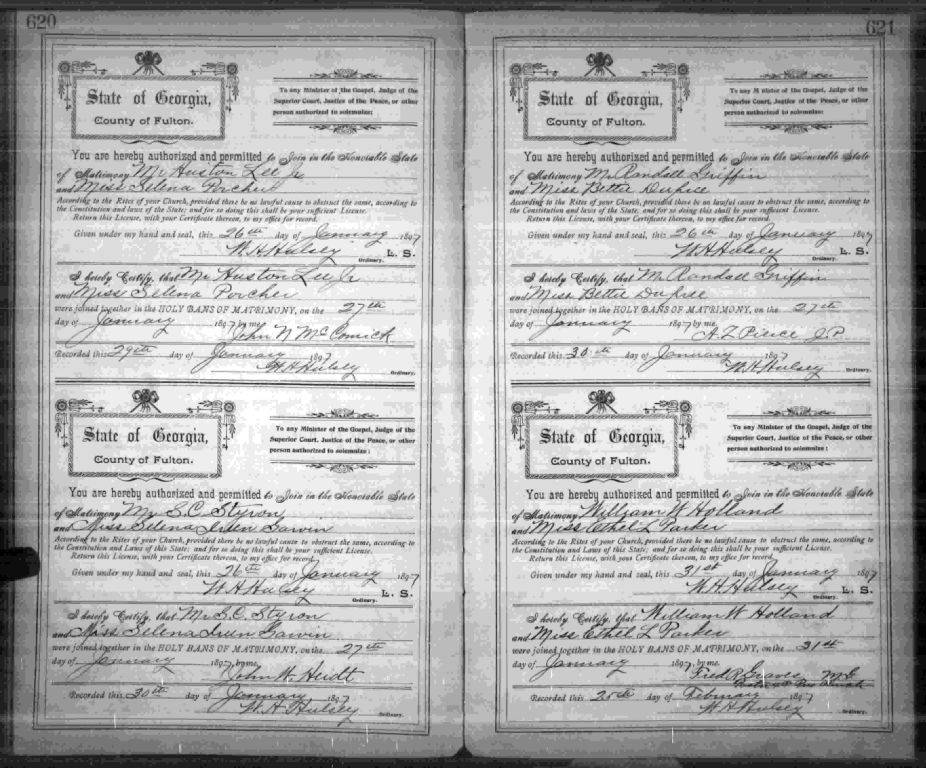 620
State of Georgia,
County of Fulton.
To any Minister of the Gospel, Judge of the
Superior Court, Justice of the Peace, or other
person authorized to solemnize:
You are hereby authorized and permitted to Join in the Honorable State
of Matrimony Mr Huston Lee Jr
and Miss Selena Porcher
According to the Rites of your Church, provided there be no lawful cause to obstruct the same, according to
the Constitution and laws of the State; and for so doing this shall be your sufficient License.
Return this License, with your Certificate thereon, to my office for record.
Given under my hand and seal, this 26th day of January 1897
W.H. Hulsey L. S.
Ordinary.
I hereby Certify, that Mr Huston Lee Jr
and Miss Selena Porcher
were joined together in the HOLY BANS OF MATRIMONY, on the 27th
day of January 1897 by me
John N McComick
Recorded this 29th day of January 1897
W.H. Hulsey
Ordinary.
State of Georgia,
County of Fulton.
To any Minister of the Gospel, Judge of the
Superior Court, Justice of the Peace, or other
person authorized to solemnize:
You are hereby authorized and permitted to Join in the Honorable State
of Matrimony Mr S.C. Styron
and Miss Selena
According to the Rites of your Church, provided there be no lawful cause to obstruct the same, according to
the Constitution and Laws of this State; and for so doing this shall be your sufficient License.
Return this License, with your Certificate thereon, to my office for record.
Given under my hand and seal, this 26th day of January 1897
W.H. Hulsey L. S.
Ordinary.
I hereby Certify, that Mr S.C. Styron
and Miss Selena
were joined together in the HOLY BANS OF MATRIMONY, on the 27th
day of January 1897, by me,
John W. Heidt
Recorded this 30th day of January 1897
W.H. Hulsey
Ordinary.
621
State of Georgia,
County of Fulton.
To any Minister of the Gospel, Judge of the
Superior Court, Justice of the Peace, or other
person authorized to solemnize:
You are hereby authorized and permitted to Join in the Honorable State
of Matrimony Mr Randall Griffin
and Miss Bettie Dupree
According to the Rites of your Church, provided there be no lawful cause to obstruct the same, according to
the Constitution and laws of the State; and for so doing this shall be your sufficient License.
Return this License, with your Certificate thereon, to my office for record.
Given under my hand and seal, this 26th day of January 1897
W.H. Hulsey L. S.
Ordinary.
I hereby Certify, that Mr Randall Griffin
and Miss Bettie Dupree
were joined together in the HOLY BANS OF MATRIMONY, on the 27th
day of January 1897 by me,
A.L. Pierce J.P.
Recorded this 30th day of January 1897
W.H. Hulsey
Ordinary.
State of Georgia,
County of Fulton.
To any Minister of the Gospel, Judge of the
Superior Court, Justice of the Peace, or other
person authorized to solemnize:
You are hereby authorized and permitted to Join in the Honorable State
of Matrimony William W Holland
and Miss Ethel L Parker
According to the Rites of your Church, provided there be no lawful cause to obstruct the same, according to
the Constitution and laws of the State; and for so doing this shall be your sufficient License.
Return this License, with your Certificate thereon, to my office for record.
Given under my hand and seal, this 31st day of January 1897
W.H. Hulsey L. S.
Ordinary.
I hereby Certify, that William W Holland
and Miss Ethel L Parker
were joined together in the HOLY BANS OF MATRIMONY, on the 31st
day of January 1897, by me.
Fred R Graves M G
Recorded this 25th day of February 1897
W H Hulsey
Ordinary.